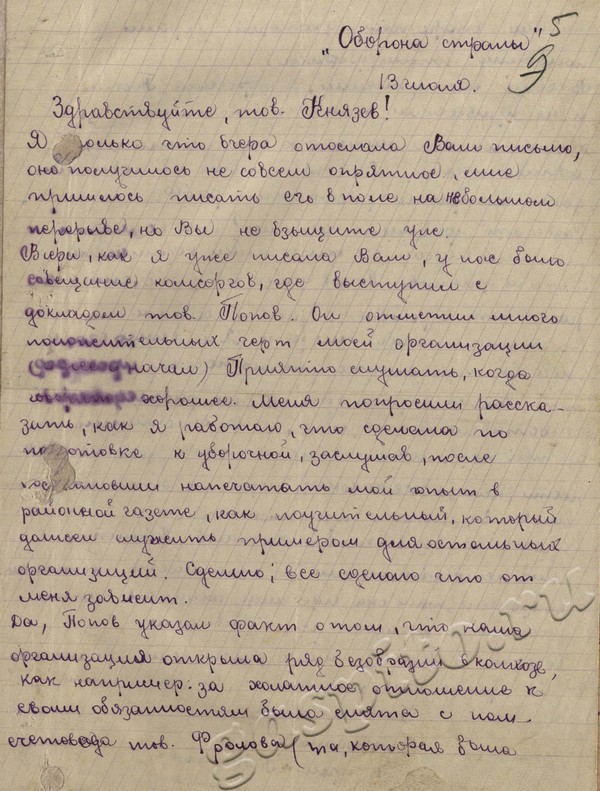 „Оборона страны" 5
9
13 июля.
Здравствуйте, тов. Князев!
Я только что вчера отослала Вам письмо,
оно получилось не совсем опрятное, мне
пришлось писать его в поле на небольшом
перерыве, но Вы не взыщите уже.
Вчера, как я уже писала Вам, у нас было
совещание комсоргов, где выступил с
докладом тов. Попов. Он отметил много
положительных черт моей организации
начал) Приятно слушать, когда
хорошее. Меня попросили расска-
зать, как я работаю, что сделала по
подготовке к уборочной, заслушав, после
постановили напечатать мой опыт в
районной газете, как поучительный, который
должен служить примером для остальных
организаций. Сделаю; все сделаю что от
меня зависит.
Да, Попов указал факт о том, что наша
организация открыла ряд безобразий в колхозе,
как например: за халатное отношение к
своим обязанностям была снята с пом.
счетовода тов. Фролова (та, которая была
gasmo.ru